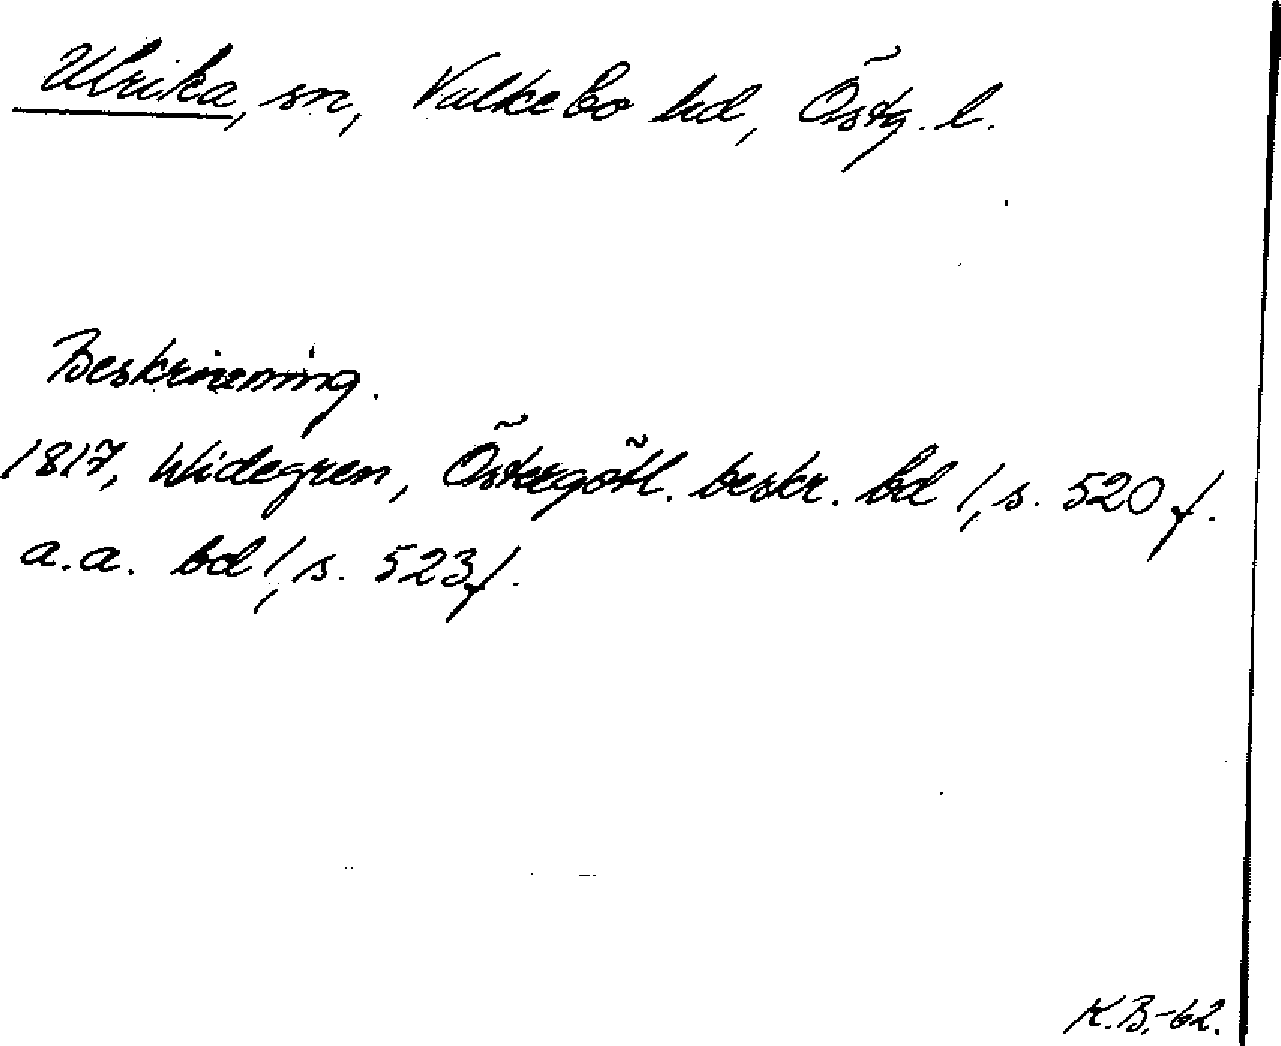 Ulrika, sn, Valkebo hd, Östg. l.
Beskrivning.
1817, Widegren, Östergötl. beskr. bd 1, s. 520 f.
a.a. bd 1, s. 523 f.
K.B.-62.